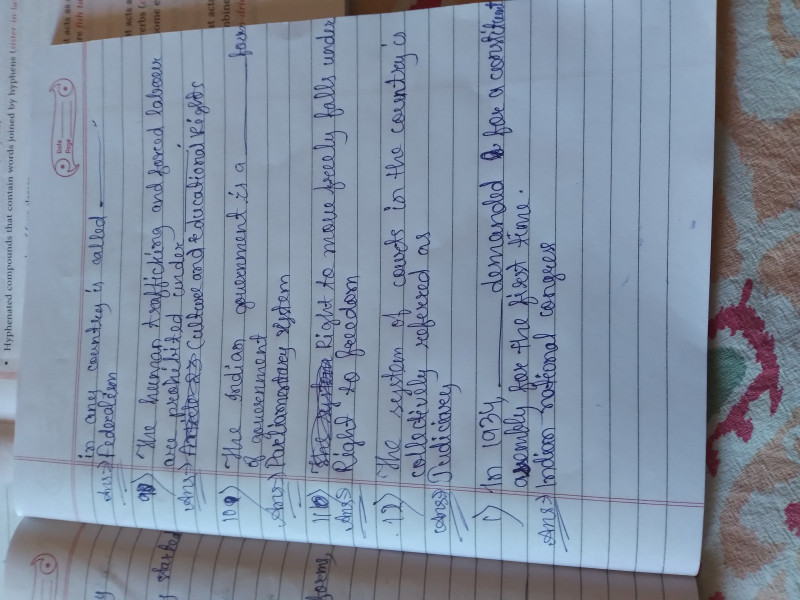 in any country is called
Ans:→ Federalism
9) The human trafficking and forced labour
are prohibited under
Ans:→ Culture and Educational Rights
10) The Indian government is a ______ form
of government
Ans:→ Parliamentary system
11) Right to move freely falls under
Ans:→ Right to freedom
12) The system of courts in the country is
collectively referred as
Ans:→ Judiciary
In 1934, ______ demanded for a constituent
assembly for the first time.
Ans:→ Indian national congres
Date
Page
• Hyphenated compounds that contain words joined by hyphens